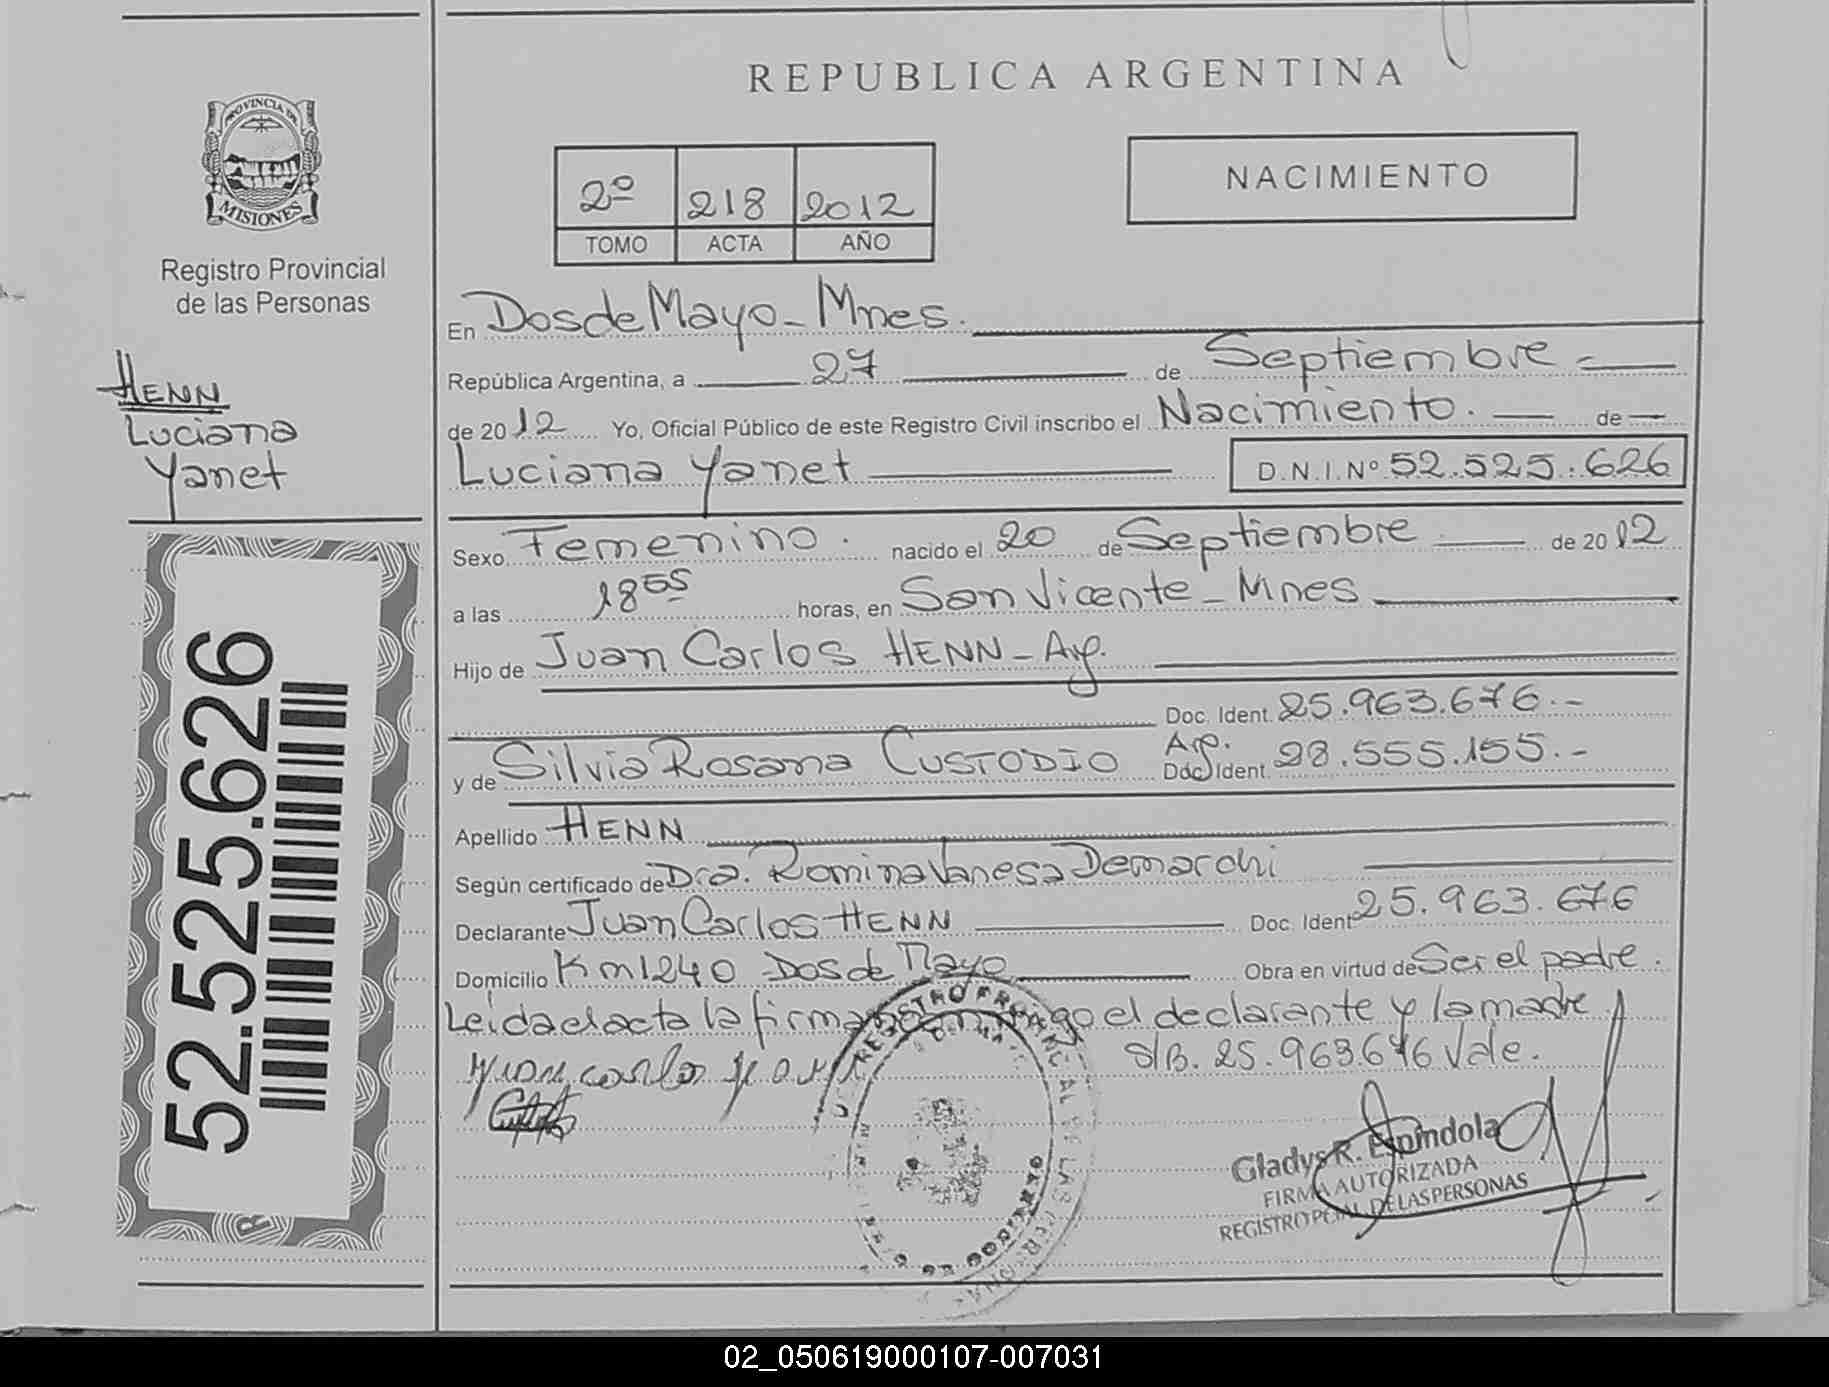 REPUBLICA ARGENTINA
PROVINCIA DE
MISIONES
Registro Provincial
de las Personas
2º 218 2012
TOMO ACTA AÑO
NACIMIENTO
HENN
Luciana
Yanet
52.525.626
En Dos de Mayo - Mnes.
República Argentina, a 27 de Septiembre
de 2012 Yo, Oficial Público de este Registro Civil inscribo el Nacimiento. de
Luciana Yanet D.N.I.Nº 52.525.626
Sexo Femenino. nacido el 20 de Septiembre de 2012
a las 18 55 horas, en San Vicente - Mnes
Hijo de Juan Carlos HENN - Arg.
Doc. Ident. 25.963.676.-
y de Silvia Rosana CUSTODIO Arg. Doc. Ident. 28.555.155.-
Apellido HENN
Según certificado de Dra. Romina Vanesa Demarchi
Declarante Juan Carlos HENN Doc. Ident 25.963.676
Domicilio Km 1240 Dos de Mayo Obra en virtud de Ser el padre.
Leída el acta la firma conmigo el declarante y la madre.
S/B. 25.963.676 Vale.
Juan Carlos
Gladys R. Espindola
FIRMA AUTORIZADA
REGISTRO PCIAL DE LAS PERSONAS
02_050619000107-007031